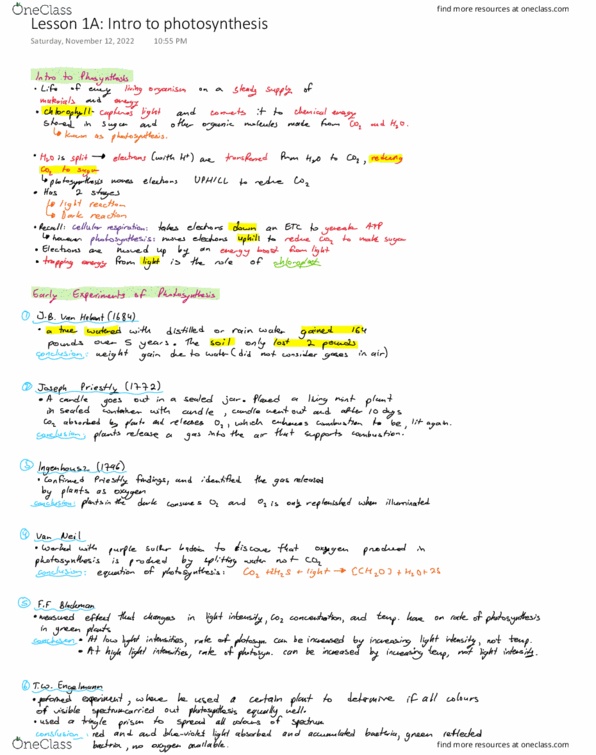 OneClass
find more resources at oneclass.com
Lesson 1A: Intro to photosynthesis
Saturday, November 12, 2022 10:55 PM
Intro to Photosynthesis
• Life of every living organism on a steady supply of
materials and energy
• chlorophyll- captures light and converts it to chemical energy
stored in sugar and other organic molecules made from CO2 and H2O.
↳ known as photosynthesis.
• H2O is split → electrons (with H+) are transferred from H2O to CO2, reducing
CO2 to sugar
↳ photosynthesis moves electrons UPHILL to reduce CO2
• Has 2 stages
↳ light reaction
↳ Dark reaction
• Recall: cellular respiration: takes electrons down an ETC to generate ATP
↳ however photosynthesis: moves electrons uphill to reduce CO2 to make sugar
• Electrons are moved up by an energy boost from light
• trapping energy from light is the role of chloroplast
Early Experiments of Photosynthesis
① J.B. Van Helmont (1684)
• a tree watered with distilled or rain water gained 164
pounds over 5 years. The soil only lost 2 pounds
conclusion: weight gain due to water (did not consider gases in air)
② Joseph Priestly (1772)
• A candle goes out in a sealed jar. Placed a living mint plant
in sealed container with candle, candle went out and after 10 days
CO2 absorbed by plants and releases O2, which enhances combustion to be, lit again.
conclusion: plants release a gas into the air that supports combustion.
③ Ingenhousz (1796)
• confirmed Priestly findings, and identified the gas released
by plants as oxygen
conclusion: plants in the dark consumes O2 and O2 is only replenished when illuminated
④ Van Neil
• Worked with purple sulfur bacteria to discover that oxygen produced in
photosynthesis is produced by splitting water not CO2
conclusion: equation of photosynthesis: CO2 + 2H2S + light → (CH2O) + H2O + 2S
⑤ F.F Blackman
• measured effect that changes in light intensity, CO2 concentration, and temp. have on rate of photosynthesis
in green plants
conclusion: • At low light intensities, rate of photosyn can be increased by increasing light intensity, not temp.
• At high light intensities, rate of photosyn. can be increased by increasing temp, not light intensity.
⑥ T.W. Engelmann
• performed experiment, where he used a certain plant to determine if all colours
of visible spectrum carried out photosynthesis equally well.
• used a triangle prism to spread all colours of spectrum
conclusion: red and and blue-violet light absorbed and accumulated bacteria, green reflected
bactria, no oxygen available.
OneClass
find more resources at oneclass.com